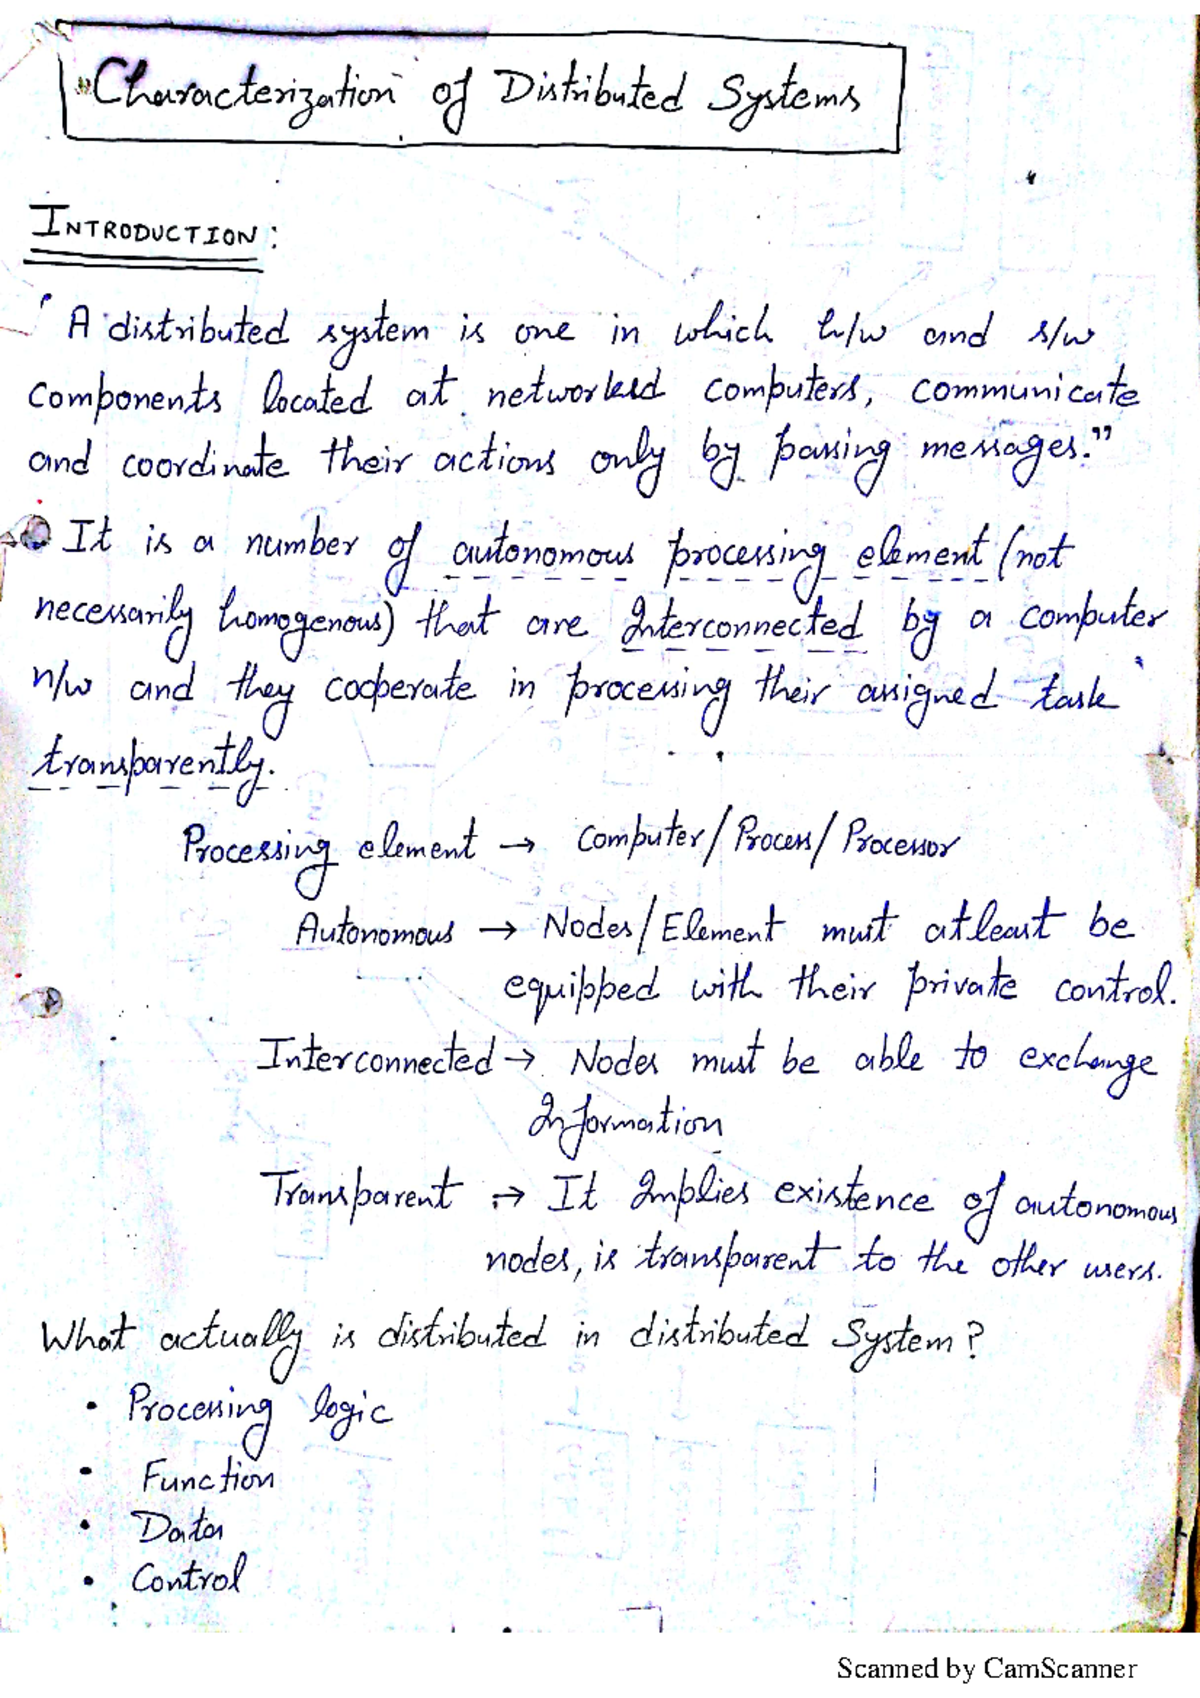 "Characterization of Distributed Systems
INTRODUCTION:
"A distributed system is one in which h/w and s/w
components located at networked computers, communicate
and coordinate their actions only by passing messages."
It is a number of autonomous processing element (not
necessarily homogenous) that are Interconnected by a computer
n/w and they cooperate in processing their assigned task
transparently.
Processing element → Computer/Process/Processor
Autonomous → Nodes/Element must atleast be
equipped with their private control.
Interconnected → Nodes must be able to exchange
Information
Transparent → It Implies existence of autonomous
nodes, is transparent to the other users.
What actually is distributed in distributed System?
• Processing logic
• Function
• Data
• Control
Scanned by CamScanner